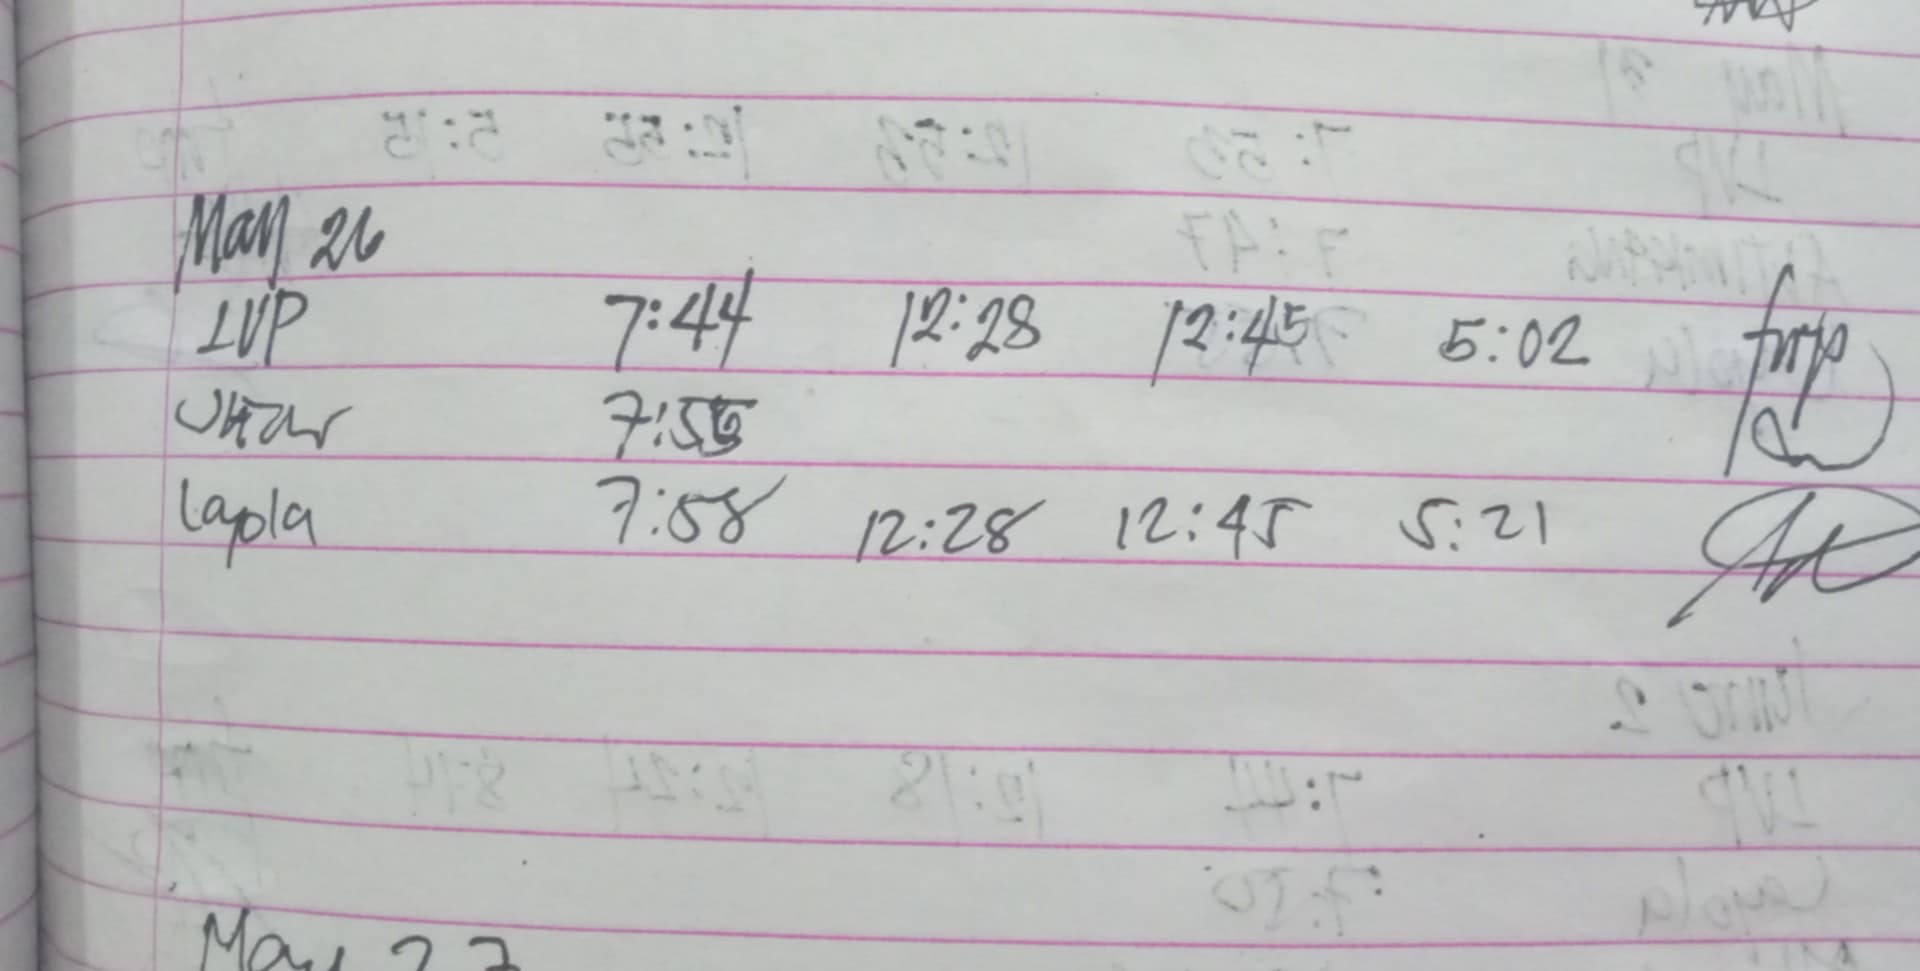 May 26
LVP 7:44 12:28 12:45 5:02
7:55
Layola 7:58 12:28 12:45 5:21
May 27